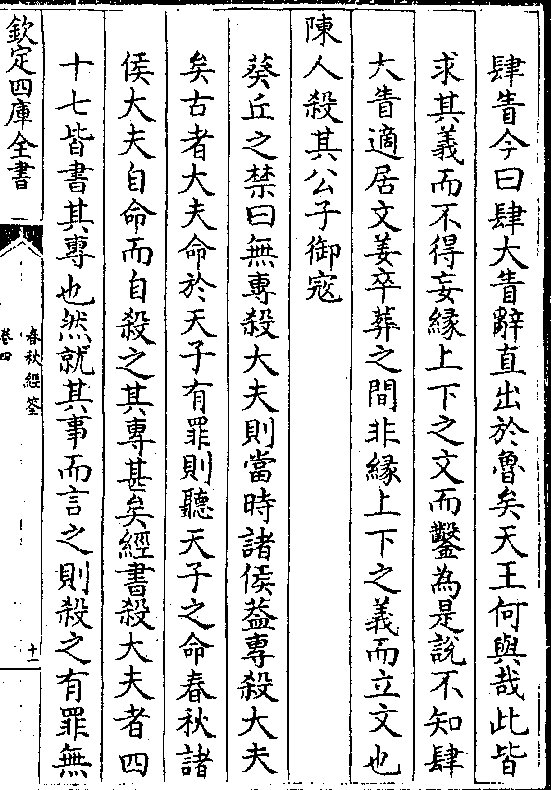 肆眚今曰肆大眚辭直出於魯矣天王何與哉此皆
求其義而不得妄緣上下之文而鑿為是說不知肆
大眚適居文姜卒葬之間非緣上下之義而立文也
陳人殺其公子御寇
葵丘之禁曰無專殺大夫則當時諸侯蓋專殺大夫
矣古者大夫命於天子有罪則聽天子之命春秋諸
侯大夫自命而自殺之其專甚矣經書殺大夫者四
十七皆書其專也然就其事而言之則殺之有罪無
欽定四庫全書
春秋經筌
卷四
十一